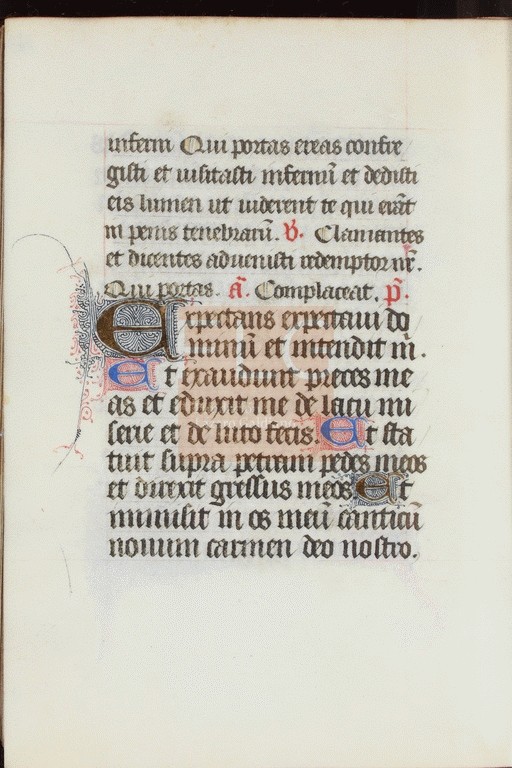 inferni Qui portas ereas confre
gisti et uisitasti infernū et dedisti
eis lumen ut uiderent te qui erāt
in penis tenebrarū. V̄. Clamantes
et dicentes aduenisti redemptor nr̄.
Qui portas. A̅. Complaceat. p̄.
Expectans expectaui do
minum et intendit m̄.
Et exaudiuit preces me
as et eduxit me de lacu mi
serie et de luto fecis. Et sta
tuit supra petram pedes meos
et direxit gressus meos Et
inmisit in os meū canticū
nouum carmen deo nostro.